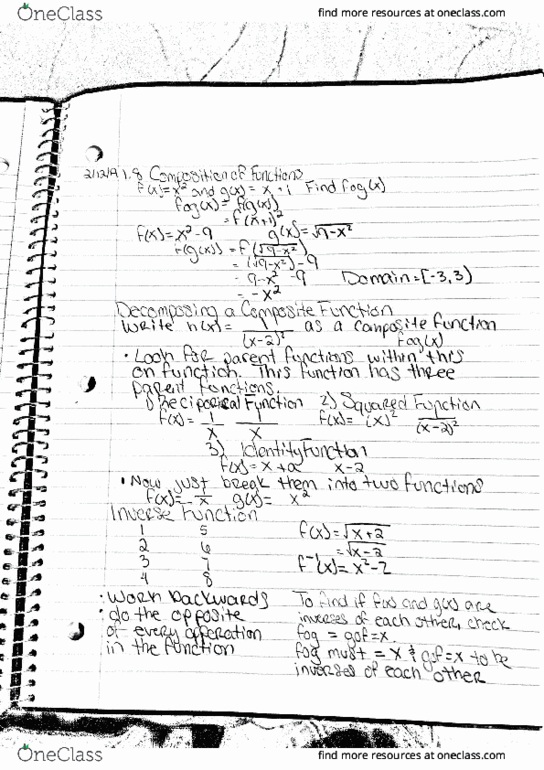 OneClass
find more resources at oneclass.com
2/12/19 1.8 Composition of Functions
f(x)=x² and g(x) = x+1 Find fog(x)
fog(x) = f(g(x))
= f(x+1)²
f(x)=x²-9 g(x)=√9-x²
f(g(x)) = f(√9-x²)
= (√9-x²)-9
= 9-x²-9
= -x²
Domain=[-3,3)
Decomposing a Composite Function
Write h(x) = 1/(x-2)² as a composite function
fog(x)
• Look for parent functions within this
on function. This function has three
parent functions.
1) Reciporical Function 2) Squared Function
f(x) = 1/x 1/x f(x) = (x)² 1/(x-2)²
3) Identity Function
f(x)=x+a x-2
• Now just break them into two functions
g(x)= x²
Inverse Function
1 5 f(x)=√x+2
2 6 =√x-2
3 7 f⁻¹(x)=x²-2
4 8
• Work backwards
• do the opposite
of every operation
in the function
To find if f(x) and g(x) are
inverses of each other, check
fog = gof=x.
fog must = x & gof=x to be
inverses of each other
OneClass
find more resources at oneclass.com